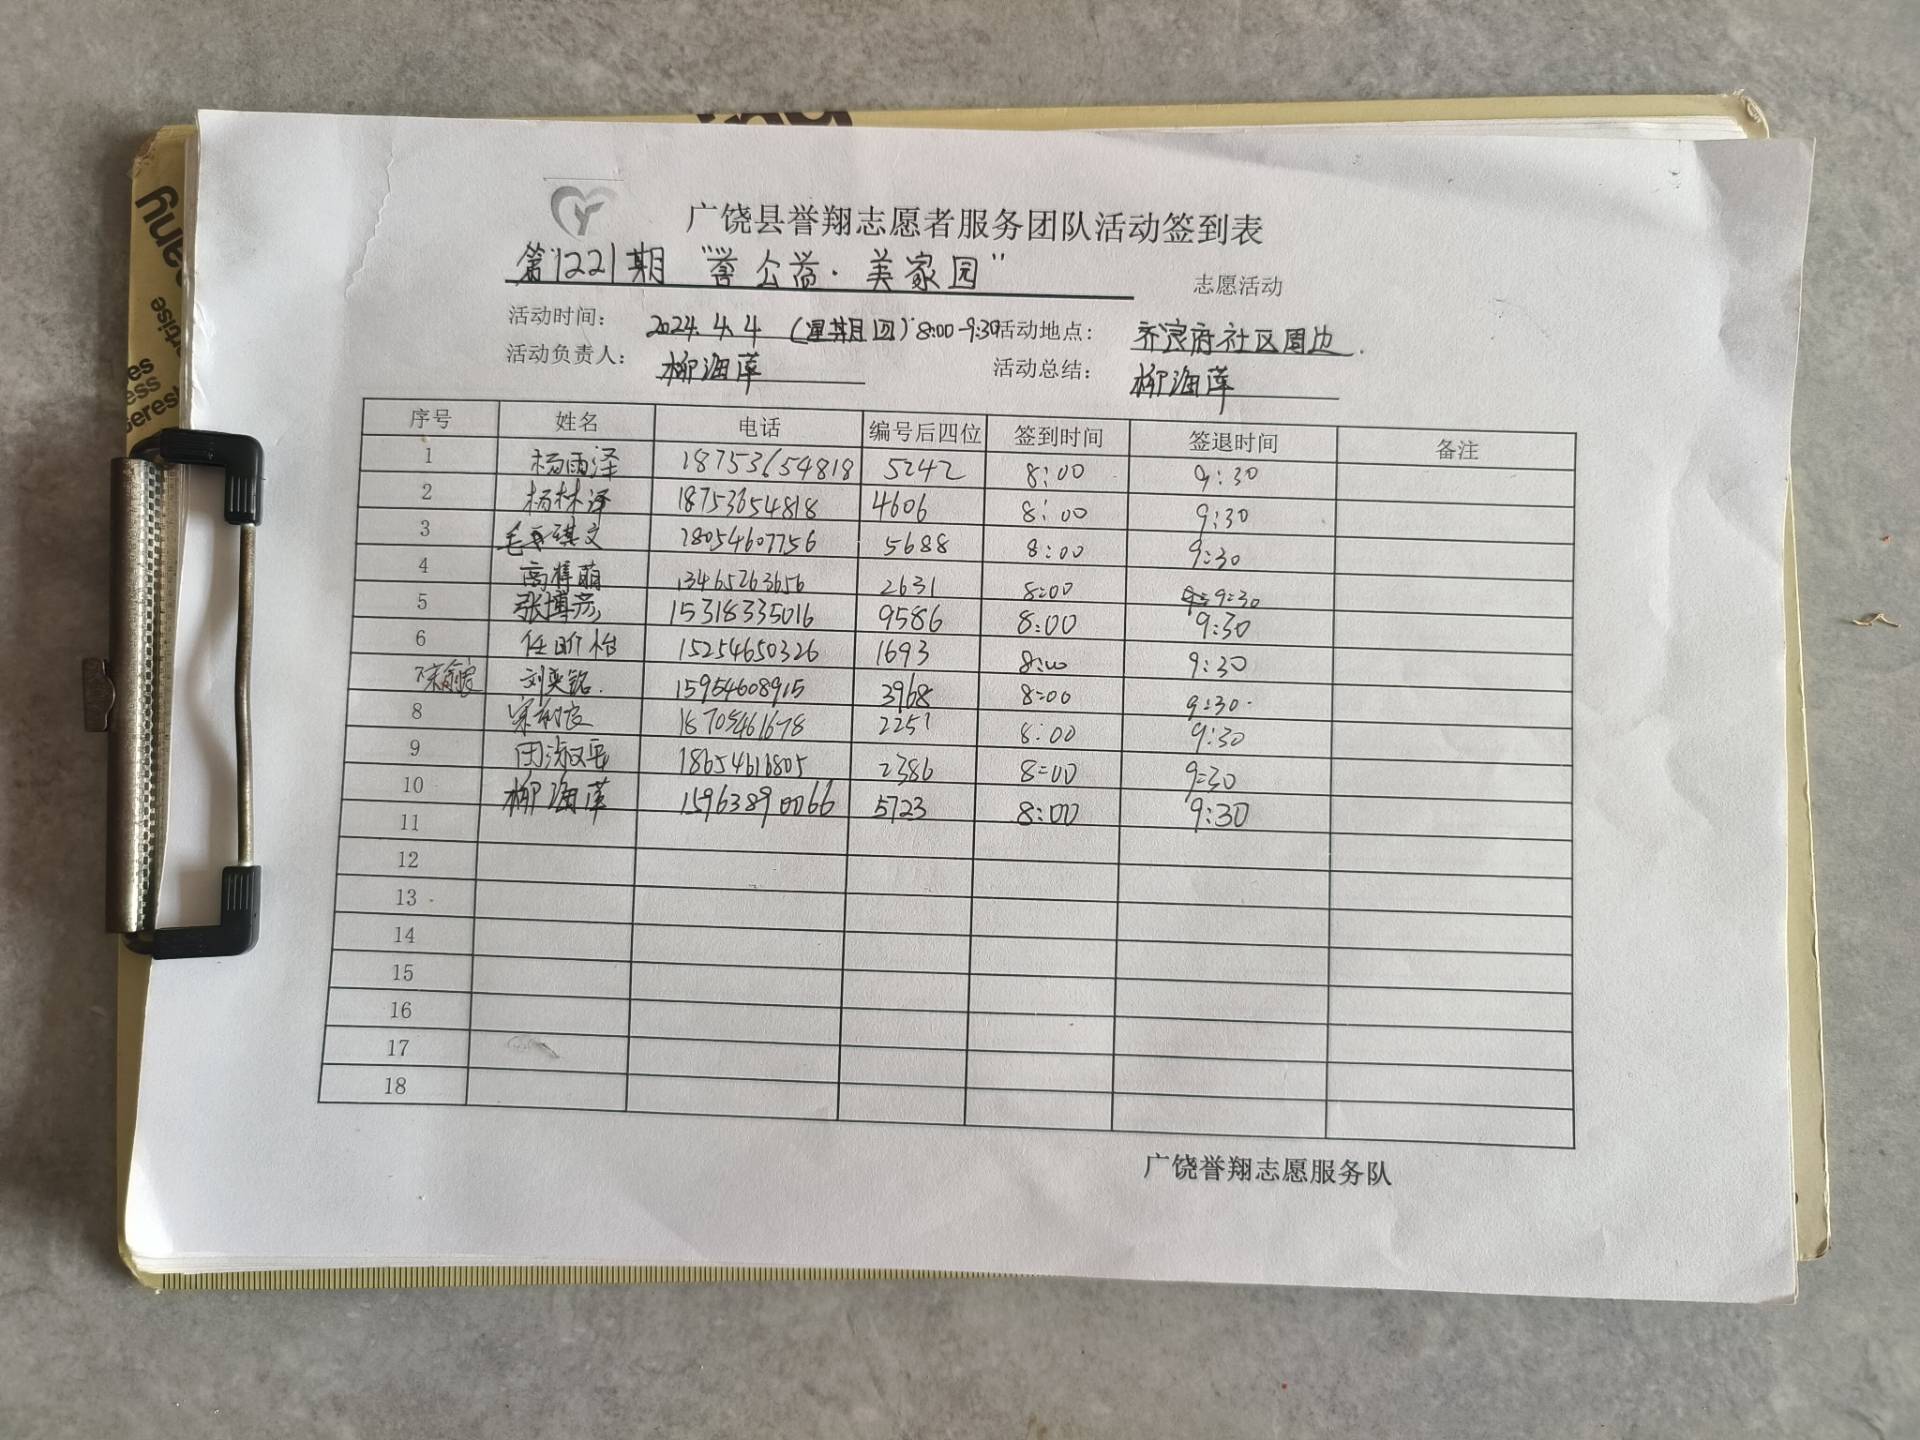 广饶县誉翔志愿者服务团队活动签到表
第1221期 “誉公益·美家园” 志愿活动
活动时间: 2024.4.4 (星期四) 8:00-9:30 活动地点: 齐滨府社区周边.
活动负责人: 柳海萍 活动总结: 柳海萍
序号 姓名 电话 编号后四位 签到时间 签退时间 备注
1 杨雨泽 18753654818 5242 8:00 9:30
2 杨林泽 18753654818 4606 8:00 9:30
3 毛 琪文 18054607756 5688 8:00 9:30
4 高梓萌 13465263656 2631 8:00 9:30
5 张博彦 15318335016 9586 8:00 9:30
6 任 怡 15254650326 1693 8:00 9:30
7 刘奕铭. 15954608915 3968 8:00 9:30.
8 18705461678 2251 8:00 9:30
9 18654616805 2386 8:00 9:30
10 柳海萍 15963890066 5723 8:00 9:30
11
12
13
14
15
16
17
18
广饶誉翔志愿服务队